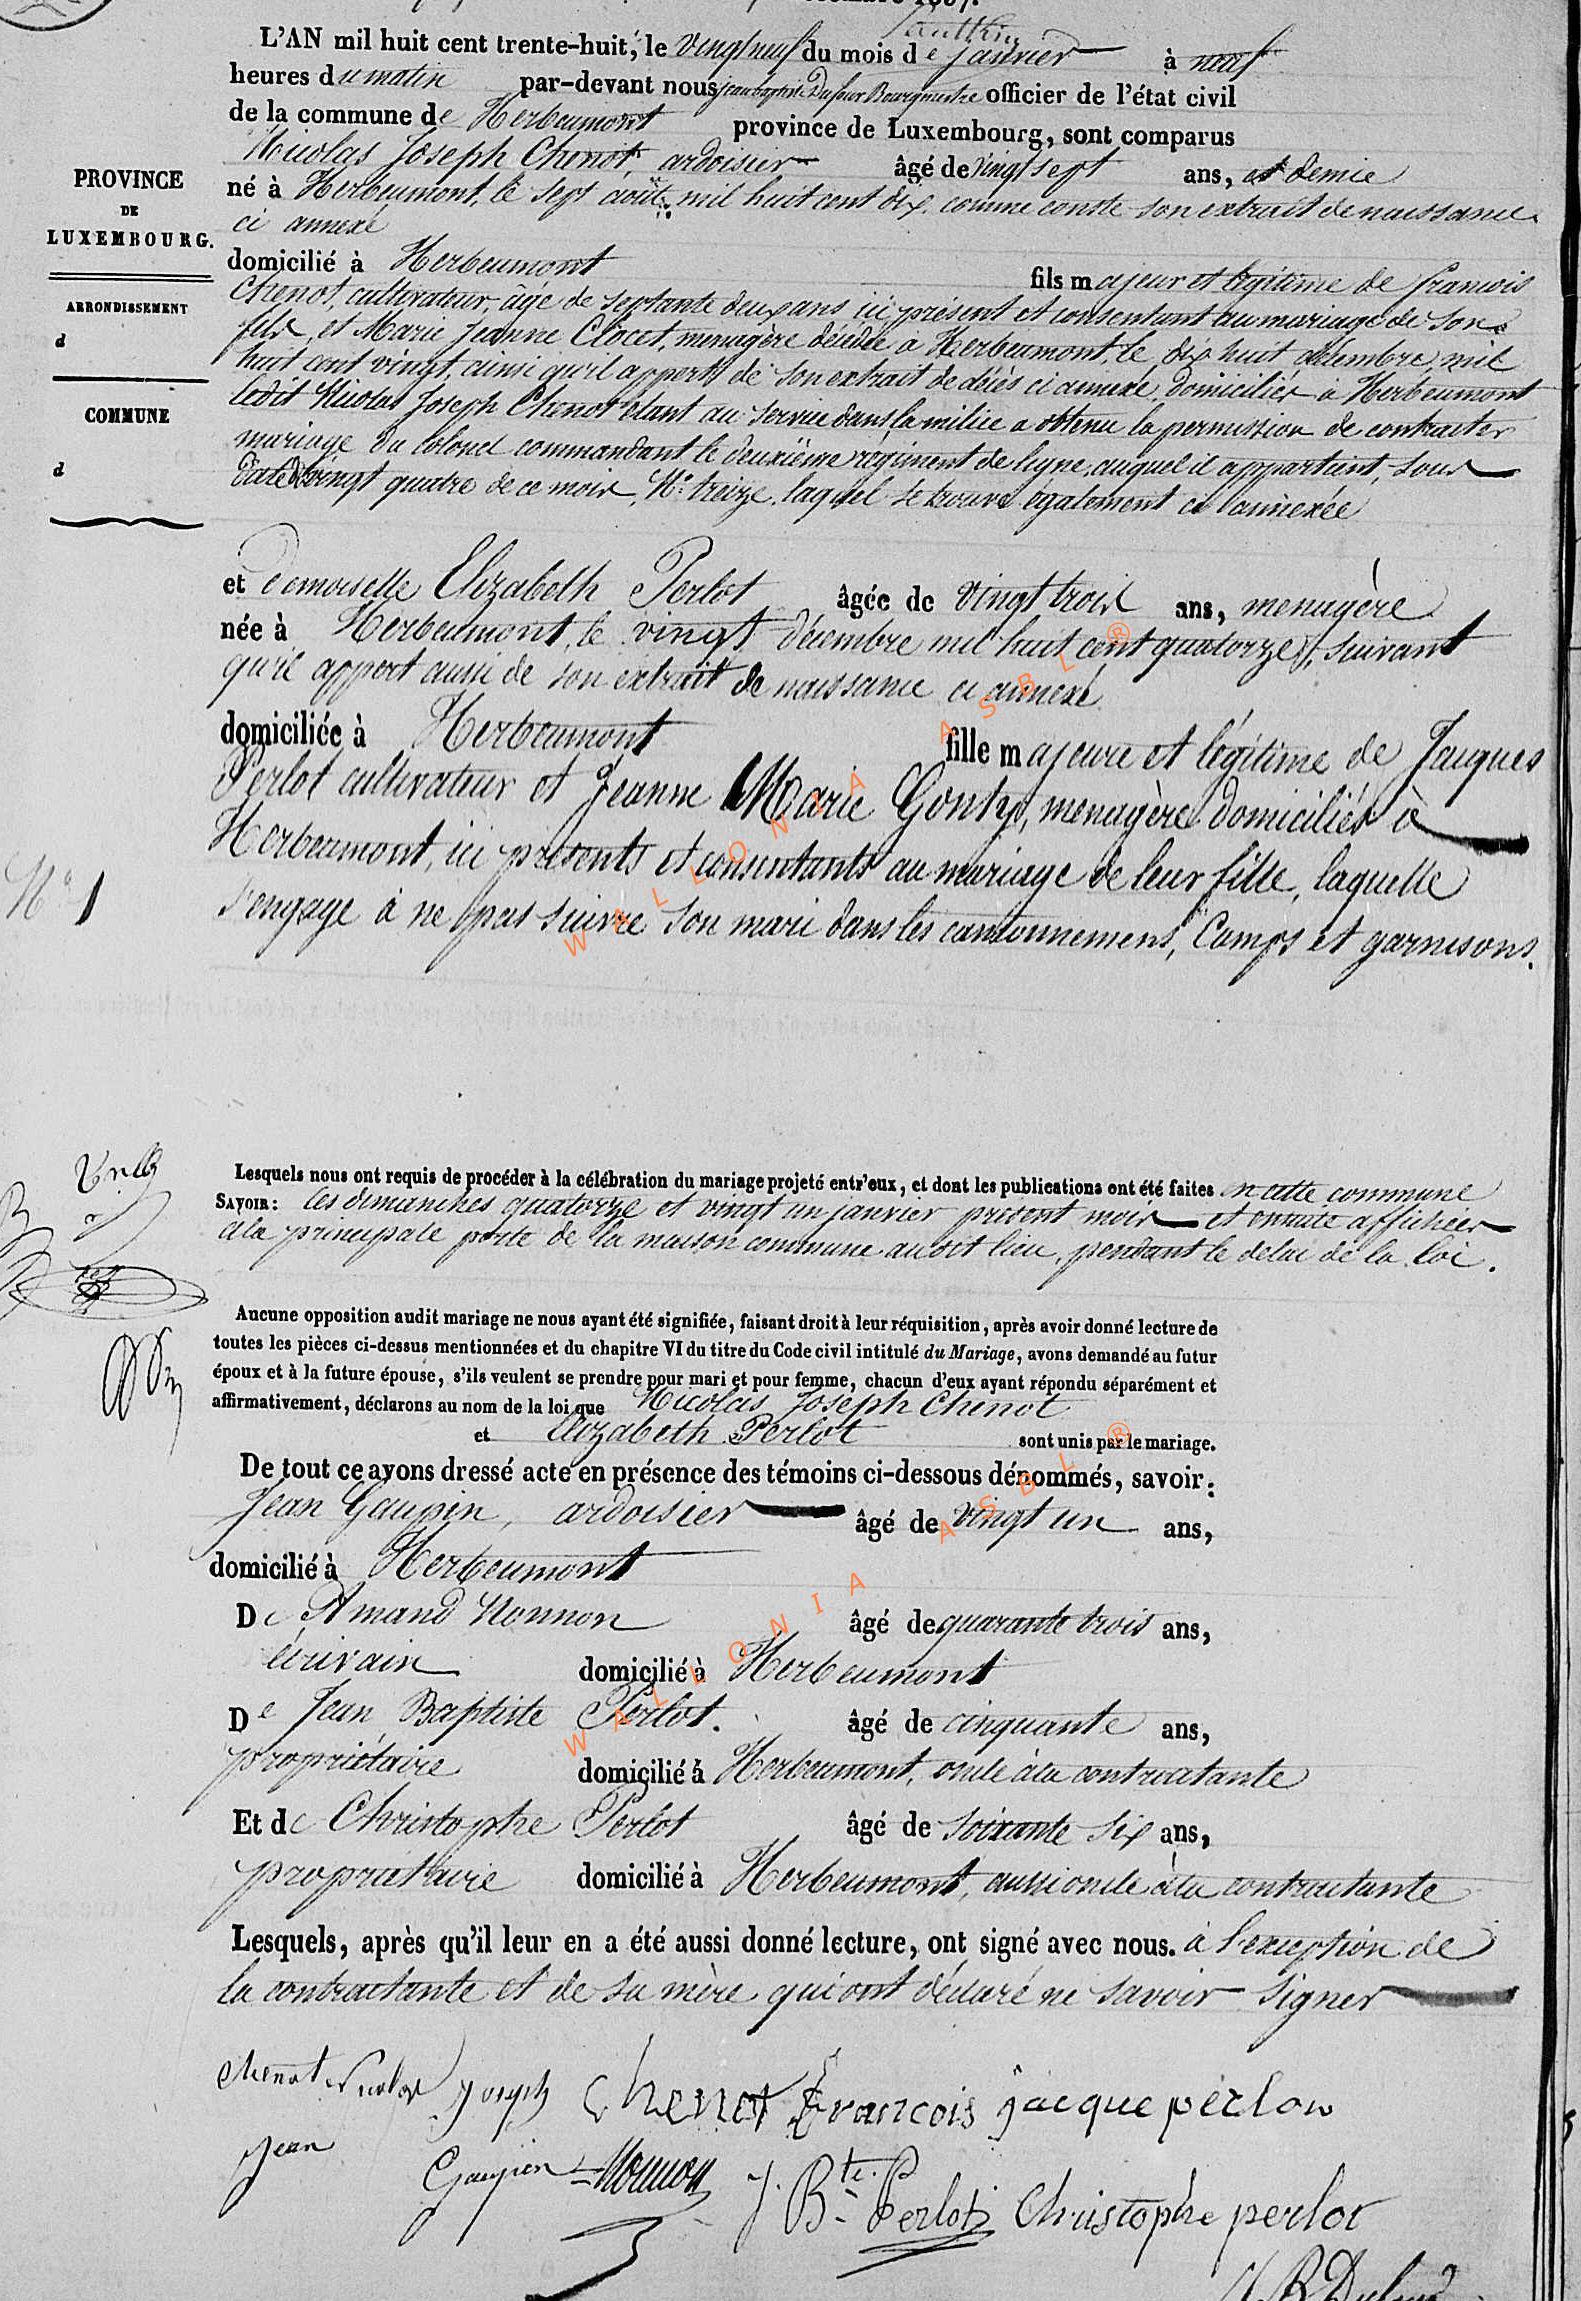 L'AN mil huit cent trente-huit, le vingt neuf du mois de janvier à neuf
heures du matin par-devant nous jean baptiste Dufour Bourgmestre officier de l'état civil
de la commune de Herbeumont province de Luxembourg, sont comparus
Nicolas Joseph Chenot, ardoisier âgé de vingt sept ans, et demie
né à Herbeumont, le sept août mil huit cent dix comme conste son extrait de naissance
ci annexé
domicilié à Herbeumont fils majeur et légitime de francois
Chenot, cultivateur, âgé de septante deux ans ici présent et consentant au mariage de son
fils, et Marie Jeanne Clocet, menagère décédée a Herbeumont, le dix huit décembre mil
huit cent vingt, ainsi qu'il appert de son extrait de décès ci annexé, domiciliés à Herbeumont
ledit Nicolas Joseph Chenot étant au service dans la milice a obtenu la permission de contracter
mariage du Colonel commandant le deuxième régiment de ligne, auquel il appartient, sous
date vingt quatre de ce mois, N° treize, laquel se trouve également ci annexée
PROVINCE
DE
LUXEMBOURG.
ARRONDISSEMENT
d
COMMUNE
d
et demoiselle Elizabeth Perlot âgée de vingt trois ans, menagère
née à Herbeumont, le vingt décembre mil huit cent quatorze, suivant
qu'il appert aussi de son extrait de naissance ci annexé
domiciliée à Herbeumont fille majeure et légitime de Jacques
Perlot cultivateur et Jeanne Marie Gonty, menagère domiciliés à
Herbeumont, ici présents et consentants au mariage de leur fille, laquelle
N° 1
s'engage à ne pas suivre son mari dans les cantonnemens, Camps et garnisons.
Lesquels nous ont requis de procéder à la célébration du mariage projeté entr'eux, et dont les publications ont été faites en cette commune
SAVOIR: les dimanches quatorze et vingt un janvier présent mois et ensuite affichées
à la principale porte de la maison commune audit lieu, pendant le delai de la loi.
Aucune opposition audit mariage ne nous ayant été signifiée, faisant droit à leur réquisition, après avoir donné lecture de
toutes les pièces ci-dessus mentionnées et du chapitre VI du titre du Code civil intitulé du Mariage, avons demandé au futur
époux et à la future épouse, s'ils veulent se prendre pour mari et pour femme, chacun d'eux ayant répondu séparément et
affirmativement, déclarons au nom de la loi que Nicolas Joseph Chenot
et Elizabeth Perlot sont unis par le mariage.
De tout ce avons dressé acte en présence des témoins ci-dessous dénommés, savoir:
Jean Gaupin, ardoisier âgé de vingt un ans,
domicilié à Herbeumont
De Amand Nonnon âgé de quarante trois ans,
écrivain domicilié à Herbeumont
De Jean Baptiste Perlot. âgé de cinquante ans,
propriétaire domicilié à Herbeumont, oncle à la contractante
Et de Christophe Perlot âgé de soixante six ans,
propriétaire domicilié à Herbeumont, aussi oncle à la contractante
Lesquels, après qu'il leur en a été aussi donné lecture, ont signé avec nous. à l'exception de
la contractante et de sa mère qui ont déclaré ne savoir signer
Chenot Nicolas Joseph Chenot Francois jacque perlow
Jean Gaupien Nonnon J. Bte. Perlot Christophe perlot
WALLONIA ASBL ®
WALLONIA ASBL ®